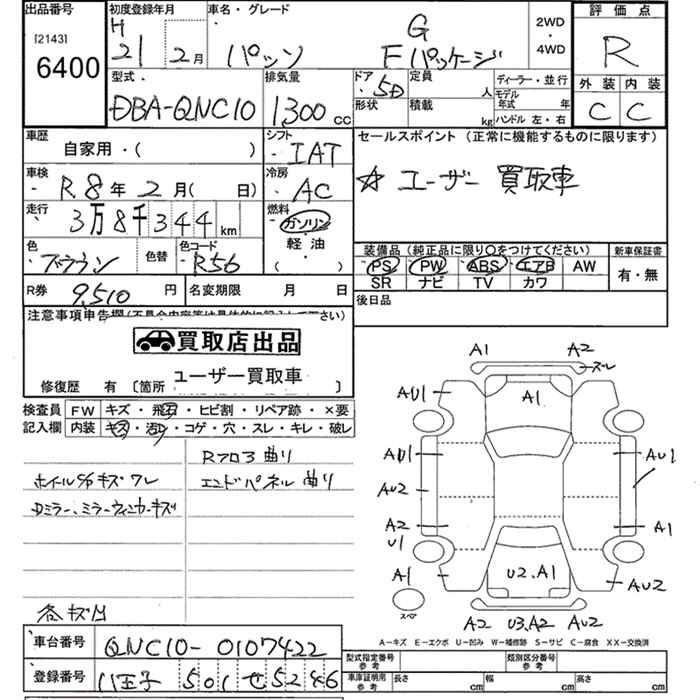 出品番号 初度登録年月 車名・グレード 評価点
[2143] H G 2WD
6400 21 2月 パッソ Fパッケージ ・4WD R
型式 排気量 ドア 定員 ディーラー・並行 外装 内装
DBA-QNC10 1300cc 5D 人 モデル年式 年 C C
形状 積載 kg ハンドル 左・右
車歴 シフト セールスポイント (正常に機能するものに限ります)
自家用・( ) IAT ☆ユーザー 買取車
車検 冷房
R8年2月( 日) AC
走行 燃料
3万8千344km ガソリン
色 色替 色コード 軽油 装備品(純正品に限り○をつけてください) 新車保証書
ブラウン R56 ( ) PS PW ABS エアB AW 有・無
SR ナビ TV カワ
R券 9,510円 名変期限 月 日 後日品
注意事項申告欄
買取店出品
ユーザー買取車
修復歴 有 〔箇所 〕
検査員 FW キズ・飛石・ヒビ割・リペア跡・×要
記入欄 内装 キズ・汚レ・コゲ・穴・スレ・キレ・破レ
Rフロア曲り
ホイルC/Pキズワレ エンドパネル曲り
ミラー、ミラーウィンカーキズ
各キズ凹
A1 A2 ズレ
AU1 A1
AU1 AU1
AU2
A2 A1
U1
A1 U2.A1 AU2
スペア
A2 U3.A2 AU2
A-キズ E-エクボ U-凹み W-補修跡 S-サビ C-腐食 XX-交換済
車台番号 QNC10-0107422 型式指定番号 参考 類別区分番号 参考
登録番号 八王子 501 せ 5246 車庫証明用 参考 長さ cm 幅 cm 高さ cm